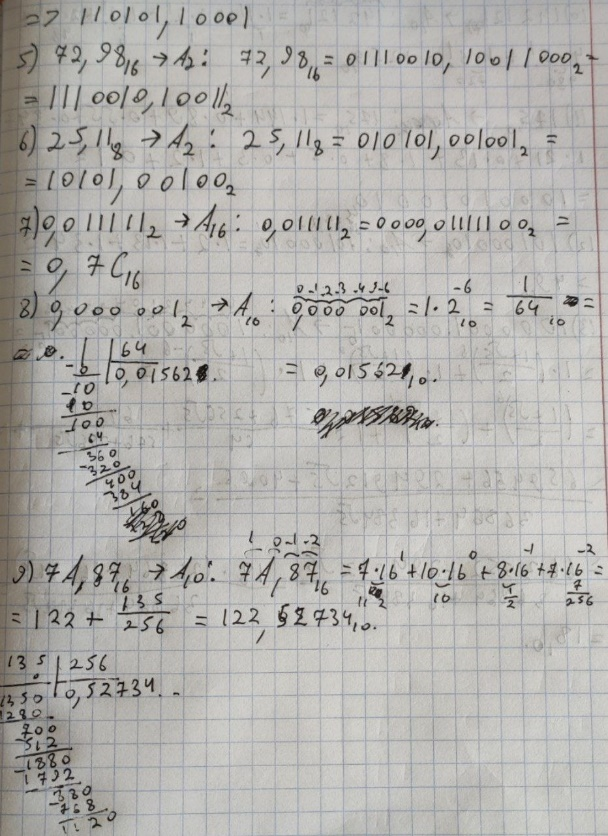 => 110101,10001
5) 72,98₁₆ → A₂: 72,98₁₆ = 01110010, 10011000₂ =
= 1110010,10011₂
6) 25,11₈ → A₂: 25,11₈ = 010101,001001₂ =
= 10101,00100₂
7) 0,0111111₂ → A₁₆: 0,011111₂ = 0000,01111100₂ =
= 0,7C₁₆
0 -1 -2 -3 -4 -5 -6
8) 0,000001₂ → A₁₀: 0,000001₂ = 1·2⁻⁶₁₀ = 1/64₁₀ =
1 | 64
-0 | 0,01562 = 0,01562₁₀.
-10
-100
64
360
-320
400
-384
160
1 0 -1 -2
9) 7A,87₁₆ → A₁₀: 7A,87₁₆ = 7·16¹ + 10·16⁰ + 8·16⁻¹ + 7·16⁻² =
112 10 1/2 7/256
= 122 + 135/256 = 122,52734₁₀.
135 | 256
1350 | 0,52734..
1280
700
-512
-1880
1792
880
-768
1120